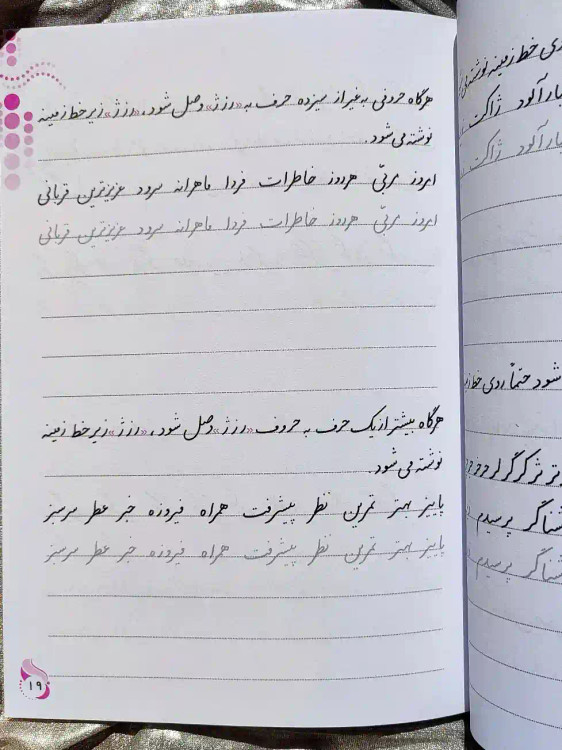 هرگاه حرفی به غیر از سیزده حرف به «ر ز ژ» وصل شود، «ر ز ژ» زیر خط زمینه
نوشته می‌شود.
امروز مربّی هرروز خاطرات فردا ماهرانه سرود عزیزترین قربانی
امروز مربّی هرروز خاطرات فردا ماهرانه سرود عزیزترین قربانی
هرگاه بیشتر از یک حرف به حروف «ر ز ژ» وصل شود، «ر ز ژ» زیر خط زمینه
نوشته می‌شود.
پاییز بهتر تمرین نظر پیشرفت همراه فیروزه خبر عطر سرسبز
پاییز بهتر تمرین نظر پیشرفت همراه فیروزه خبر عطر سرسبز
۱۹
خط زمینه نوشته
ژاکت
ژاکت
شود حتماً روی خط
پرسیدم
پرسیدم